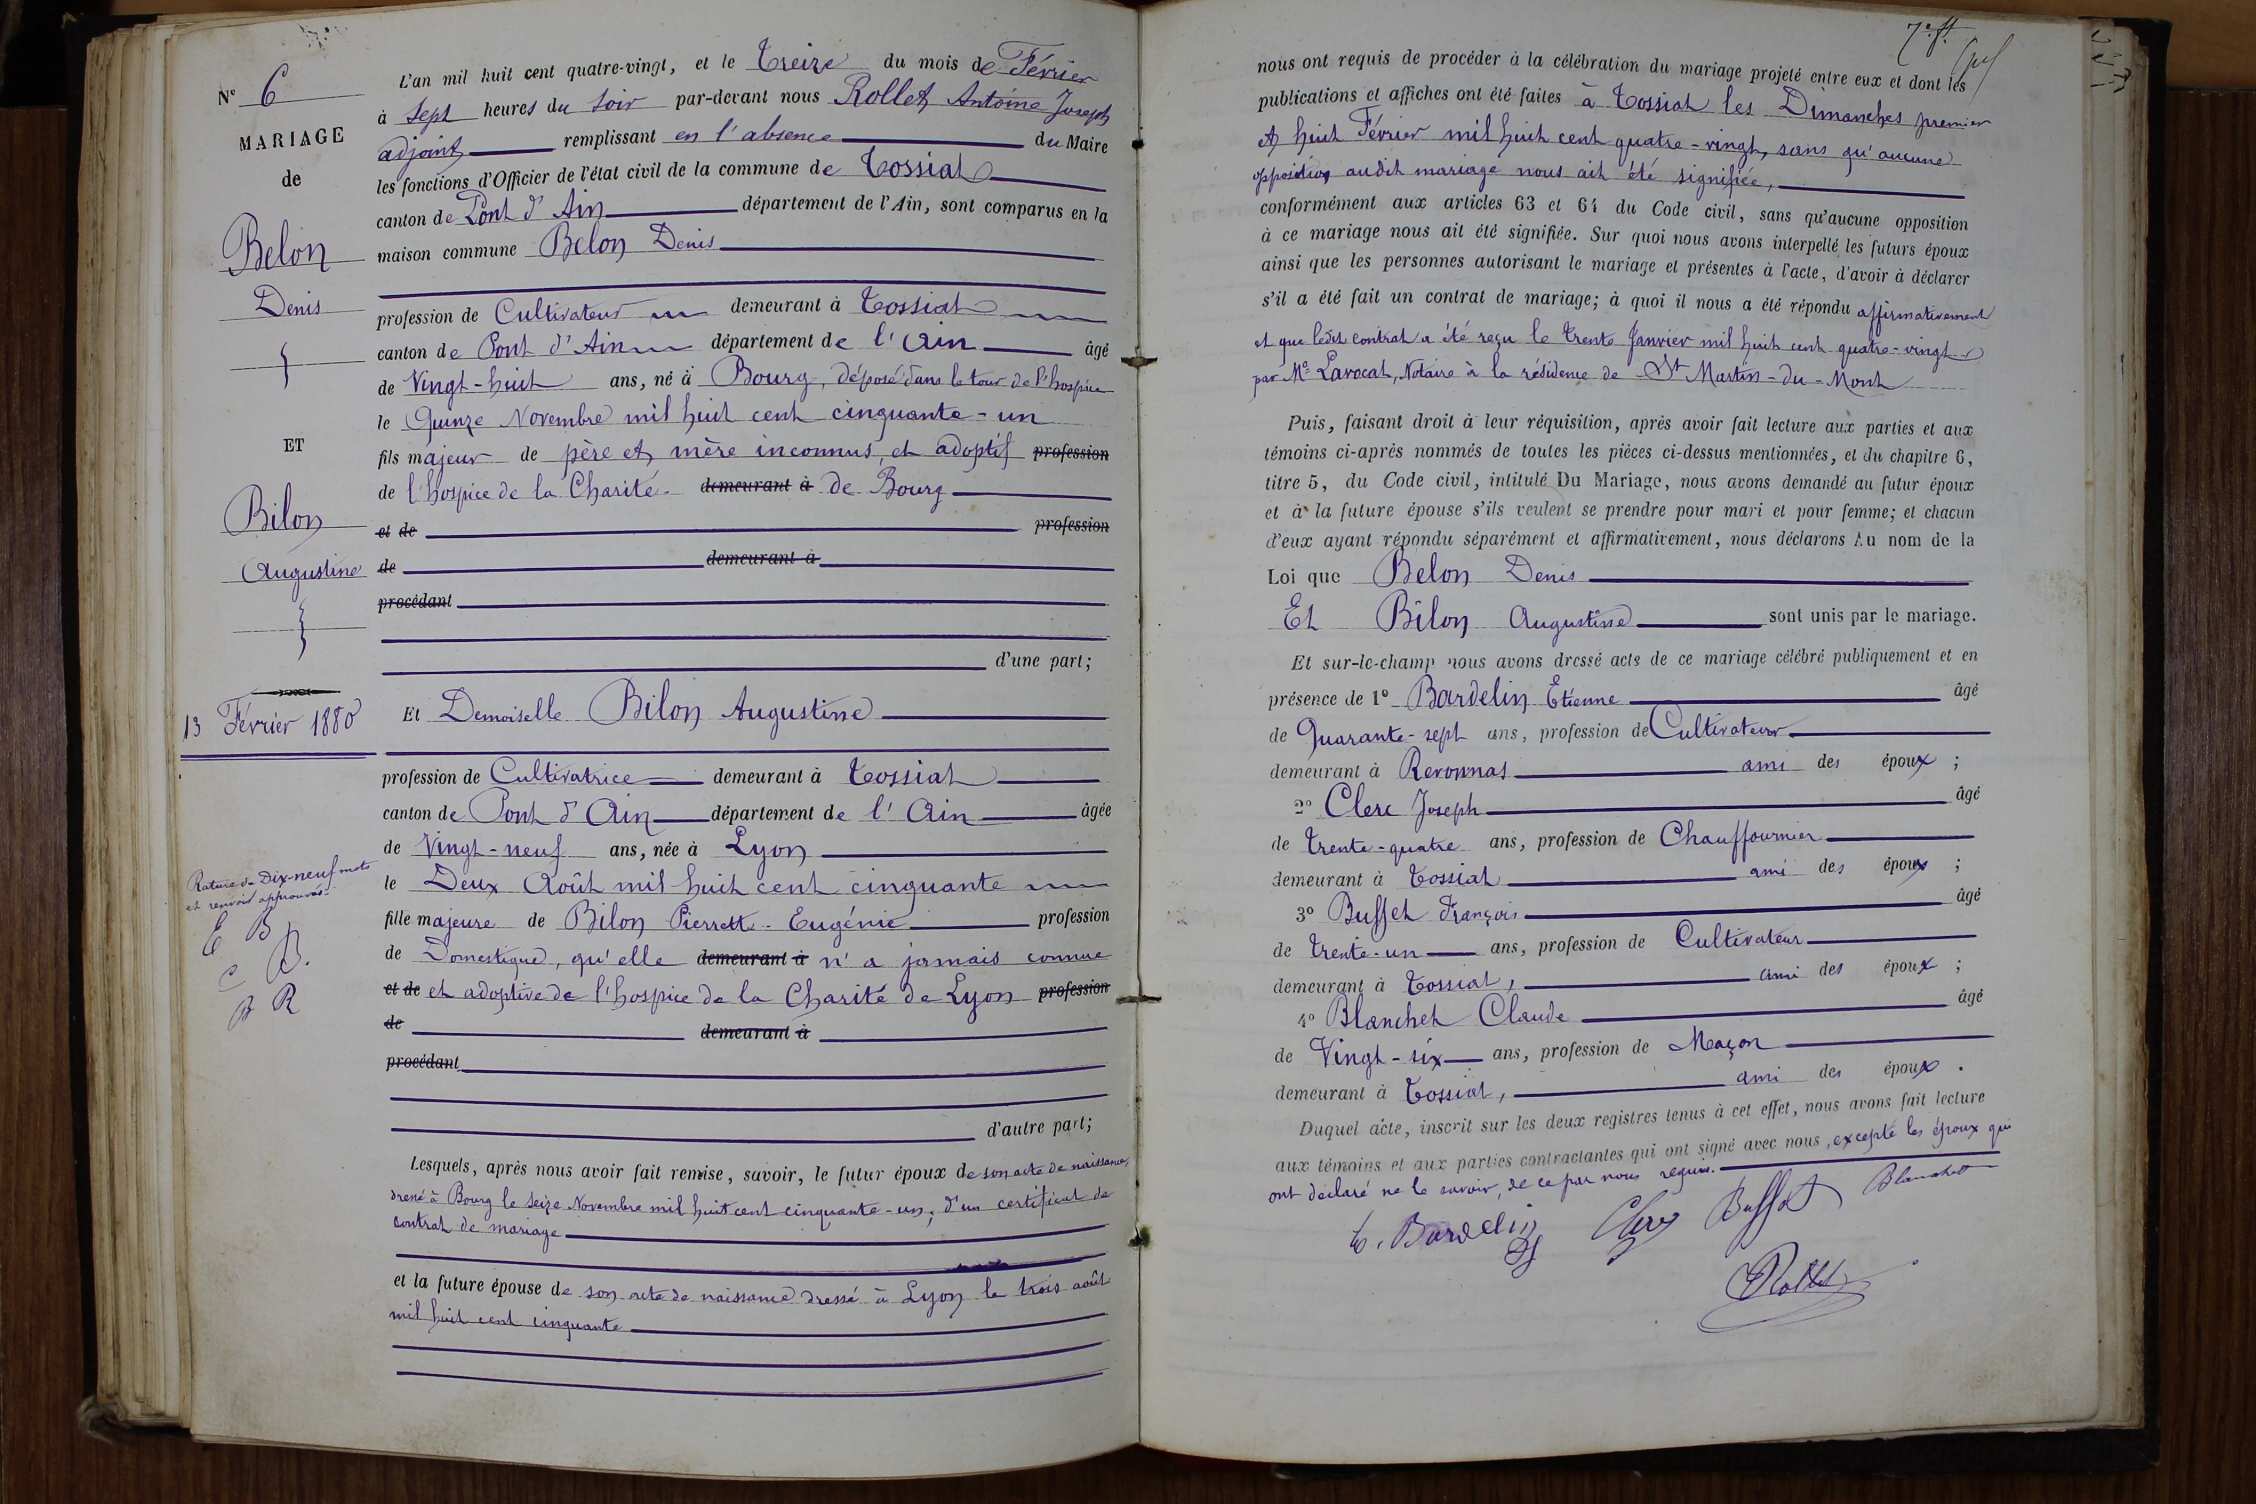 N° 6
MARIAGE
de
Belon
Denis
ET
Bilon
Augustine
13 Février 1880
Rature de Dix-neuf mots
et renvoi approuvés
E B
C B.
B R
L'an mil huit cent quatre-vingt, et le Treize du mois de Février
à Sept heures du Soir par-devant nous Rollet Antoine Joseph
adjoint remplissant en l'absence du Maire
les fonctions d'Officier de l'état civil de la commune de Tossiat
canton de Pont d'Ain département de l'Ain, sont comparus en la
maison commune Belon Denis
profession de Cultivateur demeurant à Tossiat
canton de Pont d'Ain département de l'Ain âgé
de Vingt-huit ans, né à Bourg, déposé dans le tour de l'hospice
le Quinze Novembre mil huit cent cinquante-un
fils majeur de père et mère inconnus, et adoptif profession
de l'hospice de la Charité demeurant à de Bourg
et de profession
de demeurant à
procédant
d'une part;
Et Demoiselle Bilon Augustine
profession de Cultivatrice demeurant à Tossiat
canton de Pont d'Ain département de l'Ain âgée
de Vingt-neuf ans, née à Lyon
le Deux Août mil huit cent cinquante
fille majeure de Bilon Pierrette-Eugénie profession
de Domestique, qu'elle demeurant à n'a jamais connue
et de et adoptive de l'hospice de la Charité de Lyon profession
de demeurant à
procédant
d'autre part;
Lesquels, après nous avoir fait remise, savoir, le futur époux de son acte de naissance,
dressé à Bourg le Seize Novembre mil huit cent cinquante-un; d'un certificat de
contrat de mariage
et la future épouse de son acte de naissance dressé à Lyon le trois août
mil huit cent cinquante
nous ont requis de procéder à la célébration du mariage projeté entre eux et dont les
publications et affiches ont été faites à Tossiat les Dimanches premier
et huit Février mil huit cent quatre-vingt, sans qu'aucune
opposition audit mariage nous ait été signifiée,
conformément aux articles 63 et 64 du Code civil, sans qu'aucune opposition
à ce mariage nous ait été signifiée. Sur quoi nous avons interpellé les futurs époux
ainsi que les personnes autorisant le mariage et présentes à l'acte, d'avoir à déclarer
s'il a été fait un contrat de mariage; à quoi il nous a été répondu affirmativement
et que ledit contrat a été reçu le trente Janvier mil huit cent quatre-vingt
par Me Lavocat, Notaire à la résidence de St Martin-du-Mont
Puis, faisant droit à leur réquisition, après avoir fait lecture aux parties et aux
témoins ci-après nommés de toutes les pièces ci-dessus mentionnées, et du chapitre 6,
titre 5, du Code civil, intitulé Du Mariage, nous avons demandé au futur époux
et à la future épouse s'ils veulent se prendre pour mari et pour femme; et chacun
d'eux ayant répondu séparément et affirmativement, nous déclarons Au nom de la
Loi que Belon Denis
Et Bilon Augustine sont unis par le mariage.
Et sur-le-champ nous avons dressé acte de ce mariage célébré publiquement et en
présence de 1° Bardelin Etienne âgé
de Quarante-sept ans, profession de Cultivateur
demeurant à Revonnas ami des époux ;
2° Clerc Joseph âgé
de trente-quatre ans, profession de Chauffournier
demeurant à Tossiat ami des époux ;
3° Buffet François âgé
de trente-un ans, profession de Cultivateur
demeurant à Tossiat, ami des époux ;
4° Blanchet Claude âgé
de Vingt-six ans, profession de Maçon
demeurant à Tossiat, ami des époux .
Duquel acte, inscrit sur les deux registres tenus à cet effet, nous avons fait lecture
aux témoins et aux parties contractantes qui ont signé avec nous, excepté les époux qui
ont déclaré ne le savoir, de ce par nous requis.
E. Bardelin Clerc Buffet Blanchet
Rollet